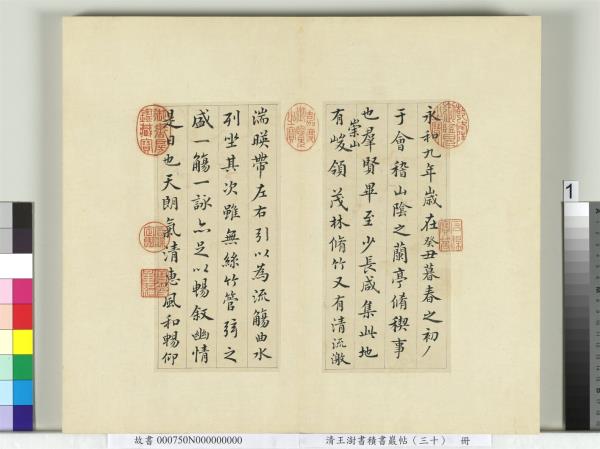 永和九年歲在癸丑暮春之初
于會稽山陰之蘭亭脩稧事
也羣賢畢至少長咸集此地
有崇山峻領茂林脩竹又有清流激
湍暎帶左右引以為流觴曲水
列坐其次雖無絲竹管弦之
盛一觴一詠亦足以暢叙幽情
是日也天朗氣清惠風和暢仰
故書 000750N000000000
清王澍書積書巖帖（三十） 冊
1